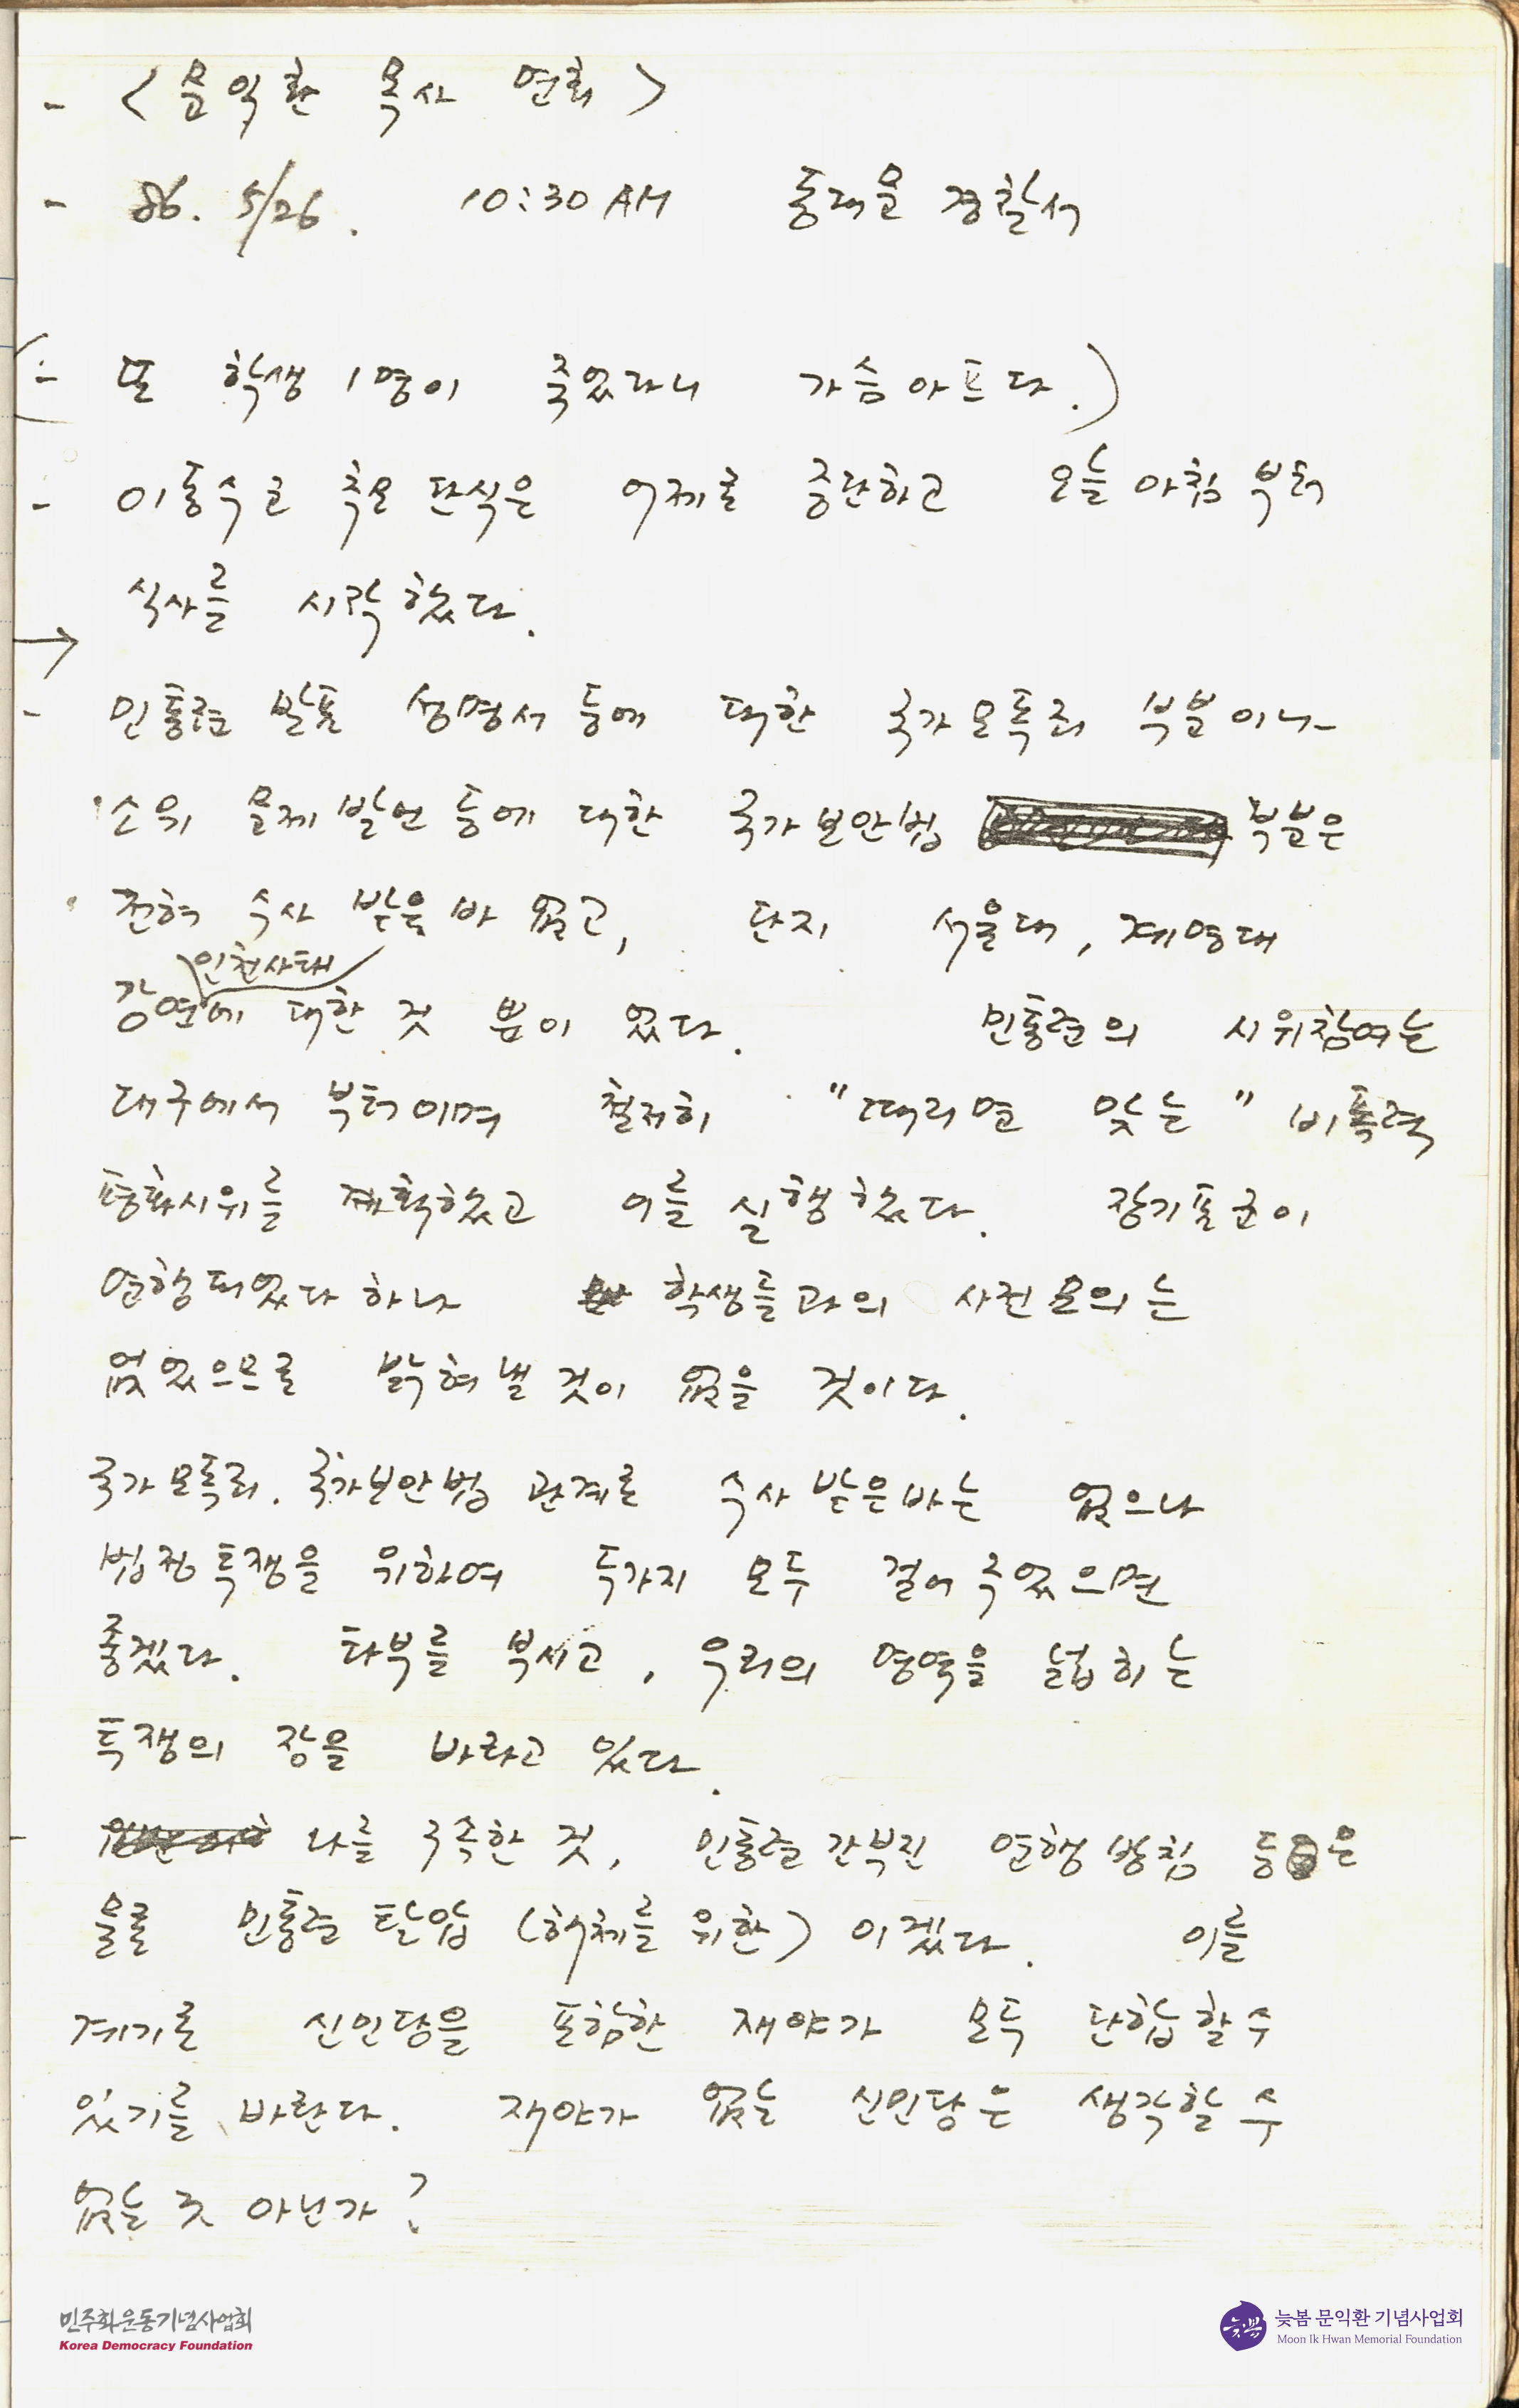 - <문익환 목사 면회>
- 86. 5/26. 10:30 AM 동대문 경찰서
(- 또 학생 1명이 죽었다니 가슴아프다.)
- 이동수군 추모 단식은 어제로 중단하고 오늘 아침부터
식사를 시작했다.
→
- 민통련 발표 성명서 등에 대한 국가모독죄 부분이나-
소위 문제발언 등에 대한 국가보안법 부분은
전혀 수사 받은 바 없고, 단지 서울대, 계명대
인천사태
강연에 대한 것 뿐이 었다. 민통련의 시위참여는
대구에서 부터이며 철저히 "때리면 맞는" 비폭력
평화시위를 계획했고 이를 실행했다. 장기표군이
연행되었다하나 학생들과의 사전모의는
없었으므로 밝혀낼 것이 없을 것이다.
국가모독죄. 국가보안법 관계로 수사받은바는 없으나
법정투쟁을 위하여 두가지 모두 걸어주었으면
좋겠다. 타부를 부시고, 우리의 영역을 넓히는
투쟁의 장을 바라고 있다.
- 나를 구속한 것, 민통련 간부진 연행방침 등은
물론 민통련 탄압 (해체를 위한) 이겠다. 이를
계기로 신민당을 포함한 재야가 모두 단합할 수
있기를 바란다. 재야가 없는 신민당은 생각할 수
없는 것 아닌가?
민주화운동기념사업회
Korea Democracy Foundation
늦봄 문익환 기념사업회
Moon Ik Hwan Memorial Foundation
늦봄